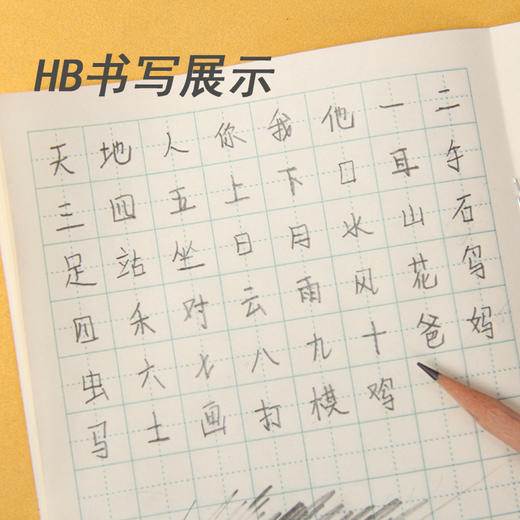 HB书写展示
天地人你我他一二
三四五上下口耳手
足站坐日月水山石
田禾对云雨风花鸟
虫六七八九十爸妈
马土画打模鸡